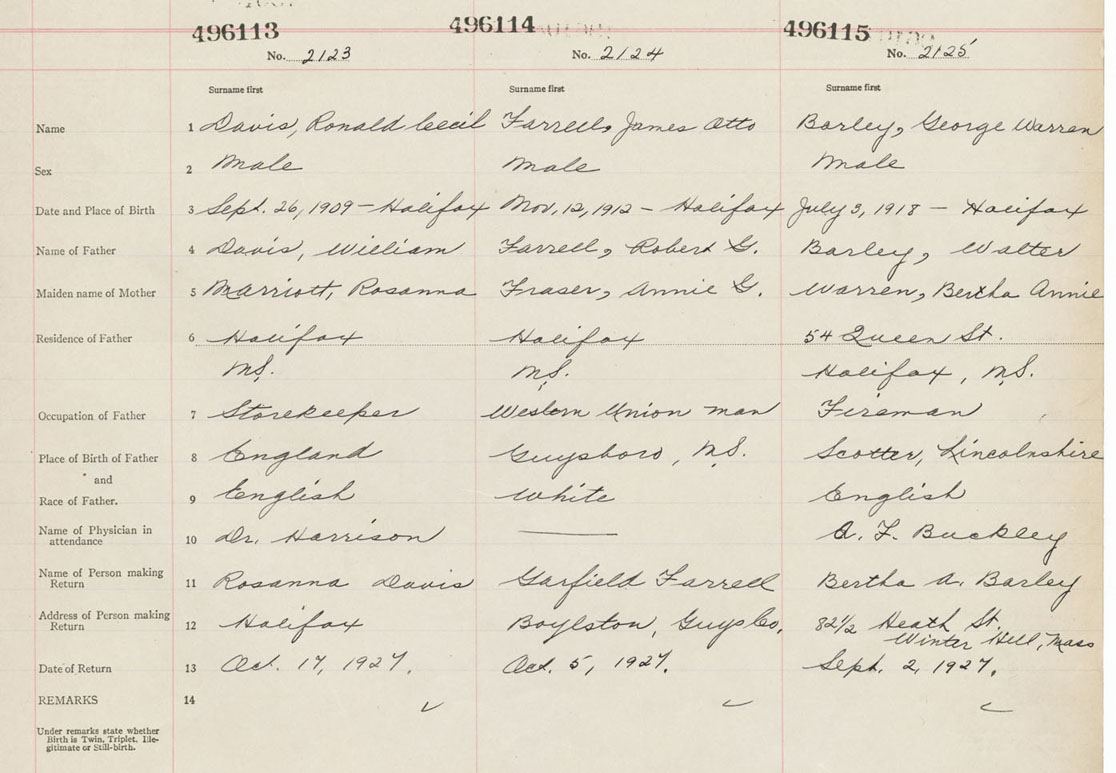 496113 496114 496115
No. 2123 No. 2124 No. 2125
Surname first Surname first Surname first
Name 1 Davis, Ronald Cecil Farrell, James Otto Barley, George Warren
Sex 2 Male Male Male
Date and Place of Birth 3 Sept. 26, 1909 - Halifax Nov. 12, 1912 - Halifax July 3, 1918 - Halifax
Name of Father 4 Davis, William Farrell, Robert G. Barley, Walter
Maiden name of Mother 5 Marriott, Rosanna Fraser, Annie G. Warren, Bertha Annie
Residence of Father 6 Halifax Halifax 54 Queen St.
N.S. N.S. Halifax, N.S.
Occupation of Father 7 Storekeeper Western Union man Fireman
Place of Birth of Father 8 England Guysboro, N.S. Scotter, Lincolnshire
and
Race of Father. 9 English White English
Name of Physician in attendance 10 Dr. Harrison A. F. Buckley
Name of Person making Return 11 Rosanna Davis Garfield Farrell Bertha A. Barley
Address of Person making Return 12 Halifax Boylston, Guys Co. 82 1/2 Heath St.
Winter Hill, Mass
Date of Return 13 Oct. 17, 1927. Oct. 5, 1927. Sept. 2, 1927.
REMARKS 14
Under remarks state whether
Birth is Twin, Triplet, Ille-
gitimate or Still-birth.